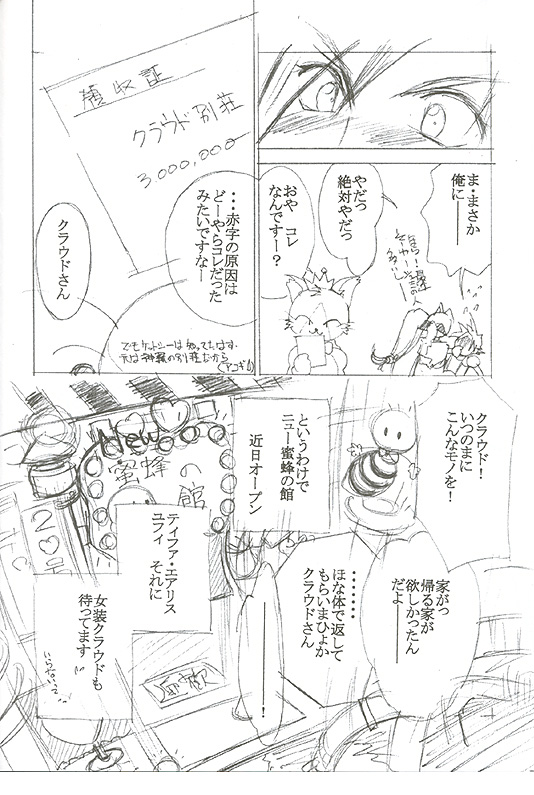 ま・まさか
俺に━━━
やだっ
絶対やだっ
おや　コレ
なんですー？
領収証
クラウド別荘
3.000.000-
・・・赤字の原因は
どーやらコレだった
みたいですなー
クラウドさん
でもケットシーは知ってたはず
元は神羅の別荘だから
クラウド！
いつのまに
こんなモノを！
家がっ
帰る家が
欲しかったん
だよ━━━
・・・・・・・
ほな体で返して
もらいまひょか
クラウドさん
━━━━！
というわけで
ニュー蜜蜂の館
近日オープン
New
蜜蜂の館
ティファ・エアリス
ユフィ　それに
女装クラウドも
待ってます